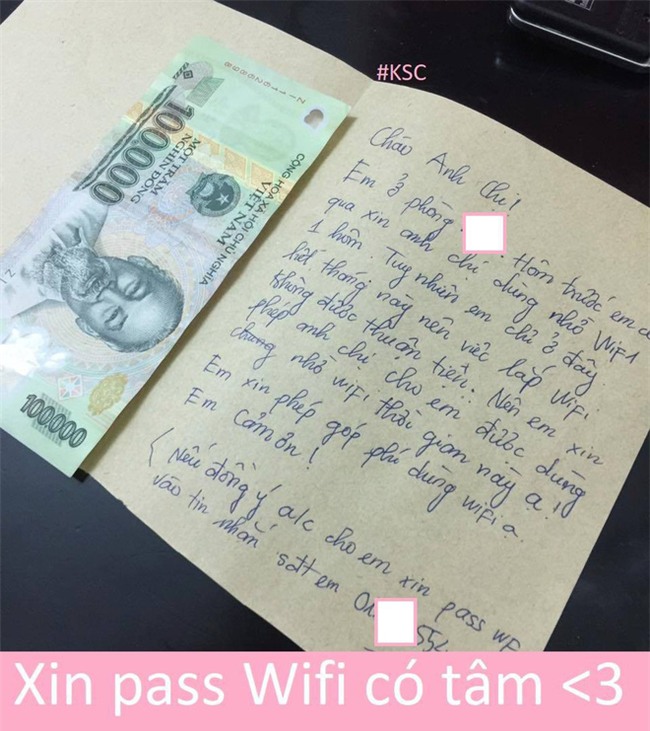 #KSC
CỘNG HÒA XÃ HỘI CHỦ NGHĨA
VIỆT NAM
MỘT TRĂM
NGHÌN ĐỒNG
100000
100000
Chào Anh Chị!
Em ở phòng . Hôm trước em
qua xin anh chị dùng nhờ WiFi
1 hôm. Tuy nhiên em chỉ ở đây
hết tháng này nên việc lắp WiFi
không được thuận tiện. Nên em xin
phép anh chị cho em được dùng
chung nhờ wifi thời gian này ạ!
Em xin phép góp phí dùng wifi ạ.
Em Cảm ơn!
(Nếu đồng ý a/c cho em xin pass wf
vào tin nhắn sđt em
Xin pass Wifi có tâm <3